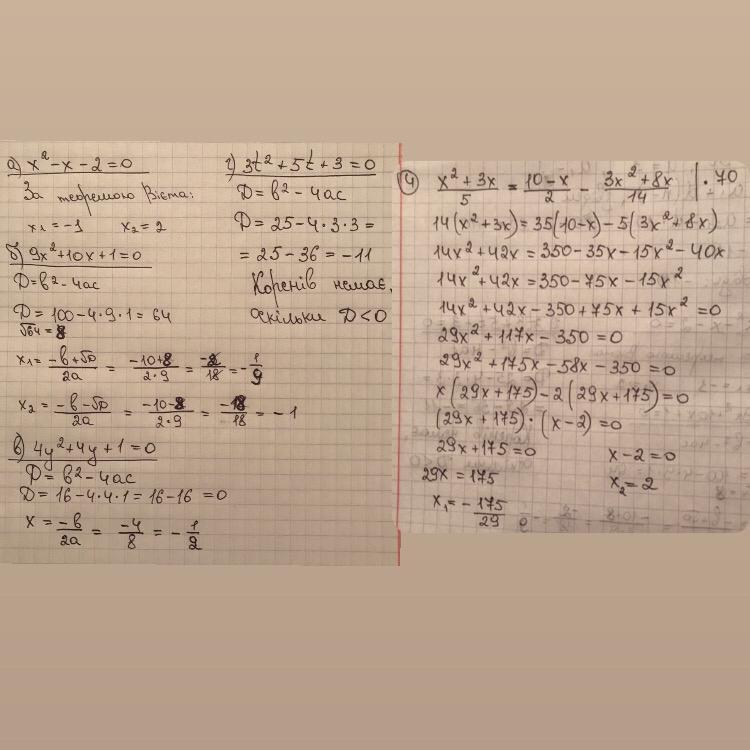 а) x² - x - 2 = 0
За теоремою Вієта:
x₁ = -1 x₂ = 2
б) 9x² + 10x + 1 = 0
D = b² - 4ac
D = 100 - 4·9·1 = 64
√64 = 8
x₁ = (-b+√D)/2a = (-10+8)/(2·9) = -2/18 = -1/9
x₂ = (-b-√D)/2a = (-10-8)/(2·9) = -18/18 = -1
в) 4y² + 4y + 1 = 0
D = b² - 4ac
D = 16 - 4·4·1 = 16 - 16 = 0
x = -b/2a = -4/8 = -1/2
г) 3t² + 5t + 3 = 0
D = b² - 4ac
D = 25 - 4·3·3 =
= 25 - 36 = -11
Коренів немає,
оскільки D < 0
4) (x²+3x)/5 = (10-x)/2 - (3x²+8x)/14 | ·70
14(x²+3x) = 35(10-x) - 5(3x²+8x)
14x² + 42x = 350 - 35x - 15x² - 40x
14x² + 42x = 350 - 75x - 15x²
14x² + 42x - 350 + 75x + 15x² = 0
29x² + 117x - 350 = 0
29x² + 175x - 58x - 350 = 0
x(29x+175) - 2(29x+175) = 0
(29x+175)·(x-2) = 0
29x + 175 = 0 x - 2 = 0
29x = 175 x₂ = 2
x₁ = -175/29